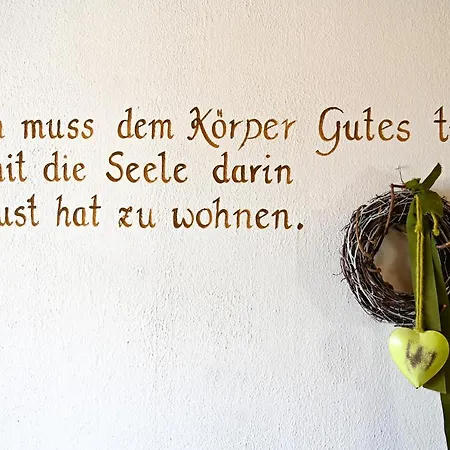 n muss dem Körper Gutes t
it die Seele darin
ust hat zu wohnen.